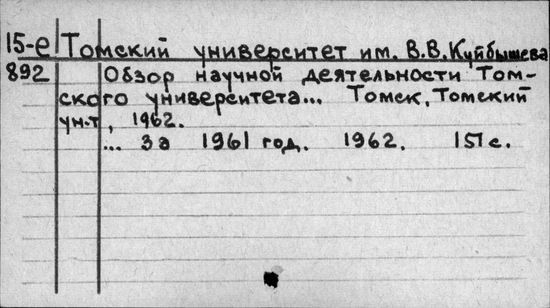 15-е Томский университет им. В.В.Куйбышева
892 Обзор научной деятельности Том-
ского университета... Томск, Томский
ун-т, 1962.
... За 1961 год. 1962. 151с.